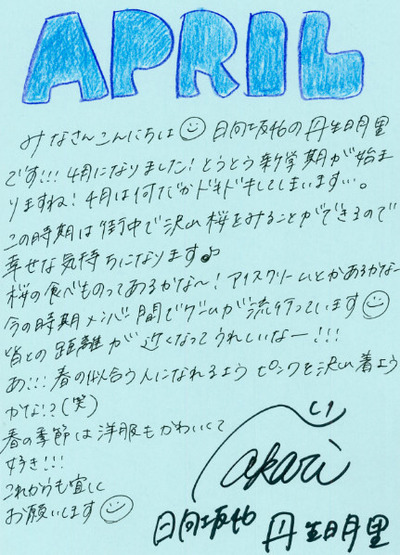 APRIL
みなさんこんにちは 日向坂46の丹生明里
です!!! 4月になりました! とうとう新学期が始ま
りますね! 4月は何だかドキドキしてしまいます…。
この時期は街中で沢山桜をみることができるので
幸せな気持ちになります♪
桜の食べものってあるかな〜! アイスクリームとかあるかな〜
今の時期メンバー間でゲームが流行っています
皆との距離が近くなってうれしいなー!!!
あ!!! 春の似合う人になれるよう ピンクを沢山着よう
かな!?(笑)
春の季節は洋服もかわいくて
好き!!!
これからも宜しく
お願いします
akari
日向坂46 丹生明里